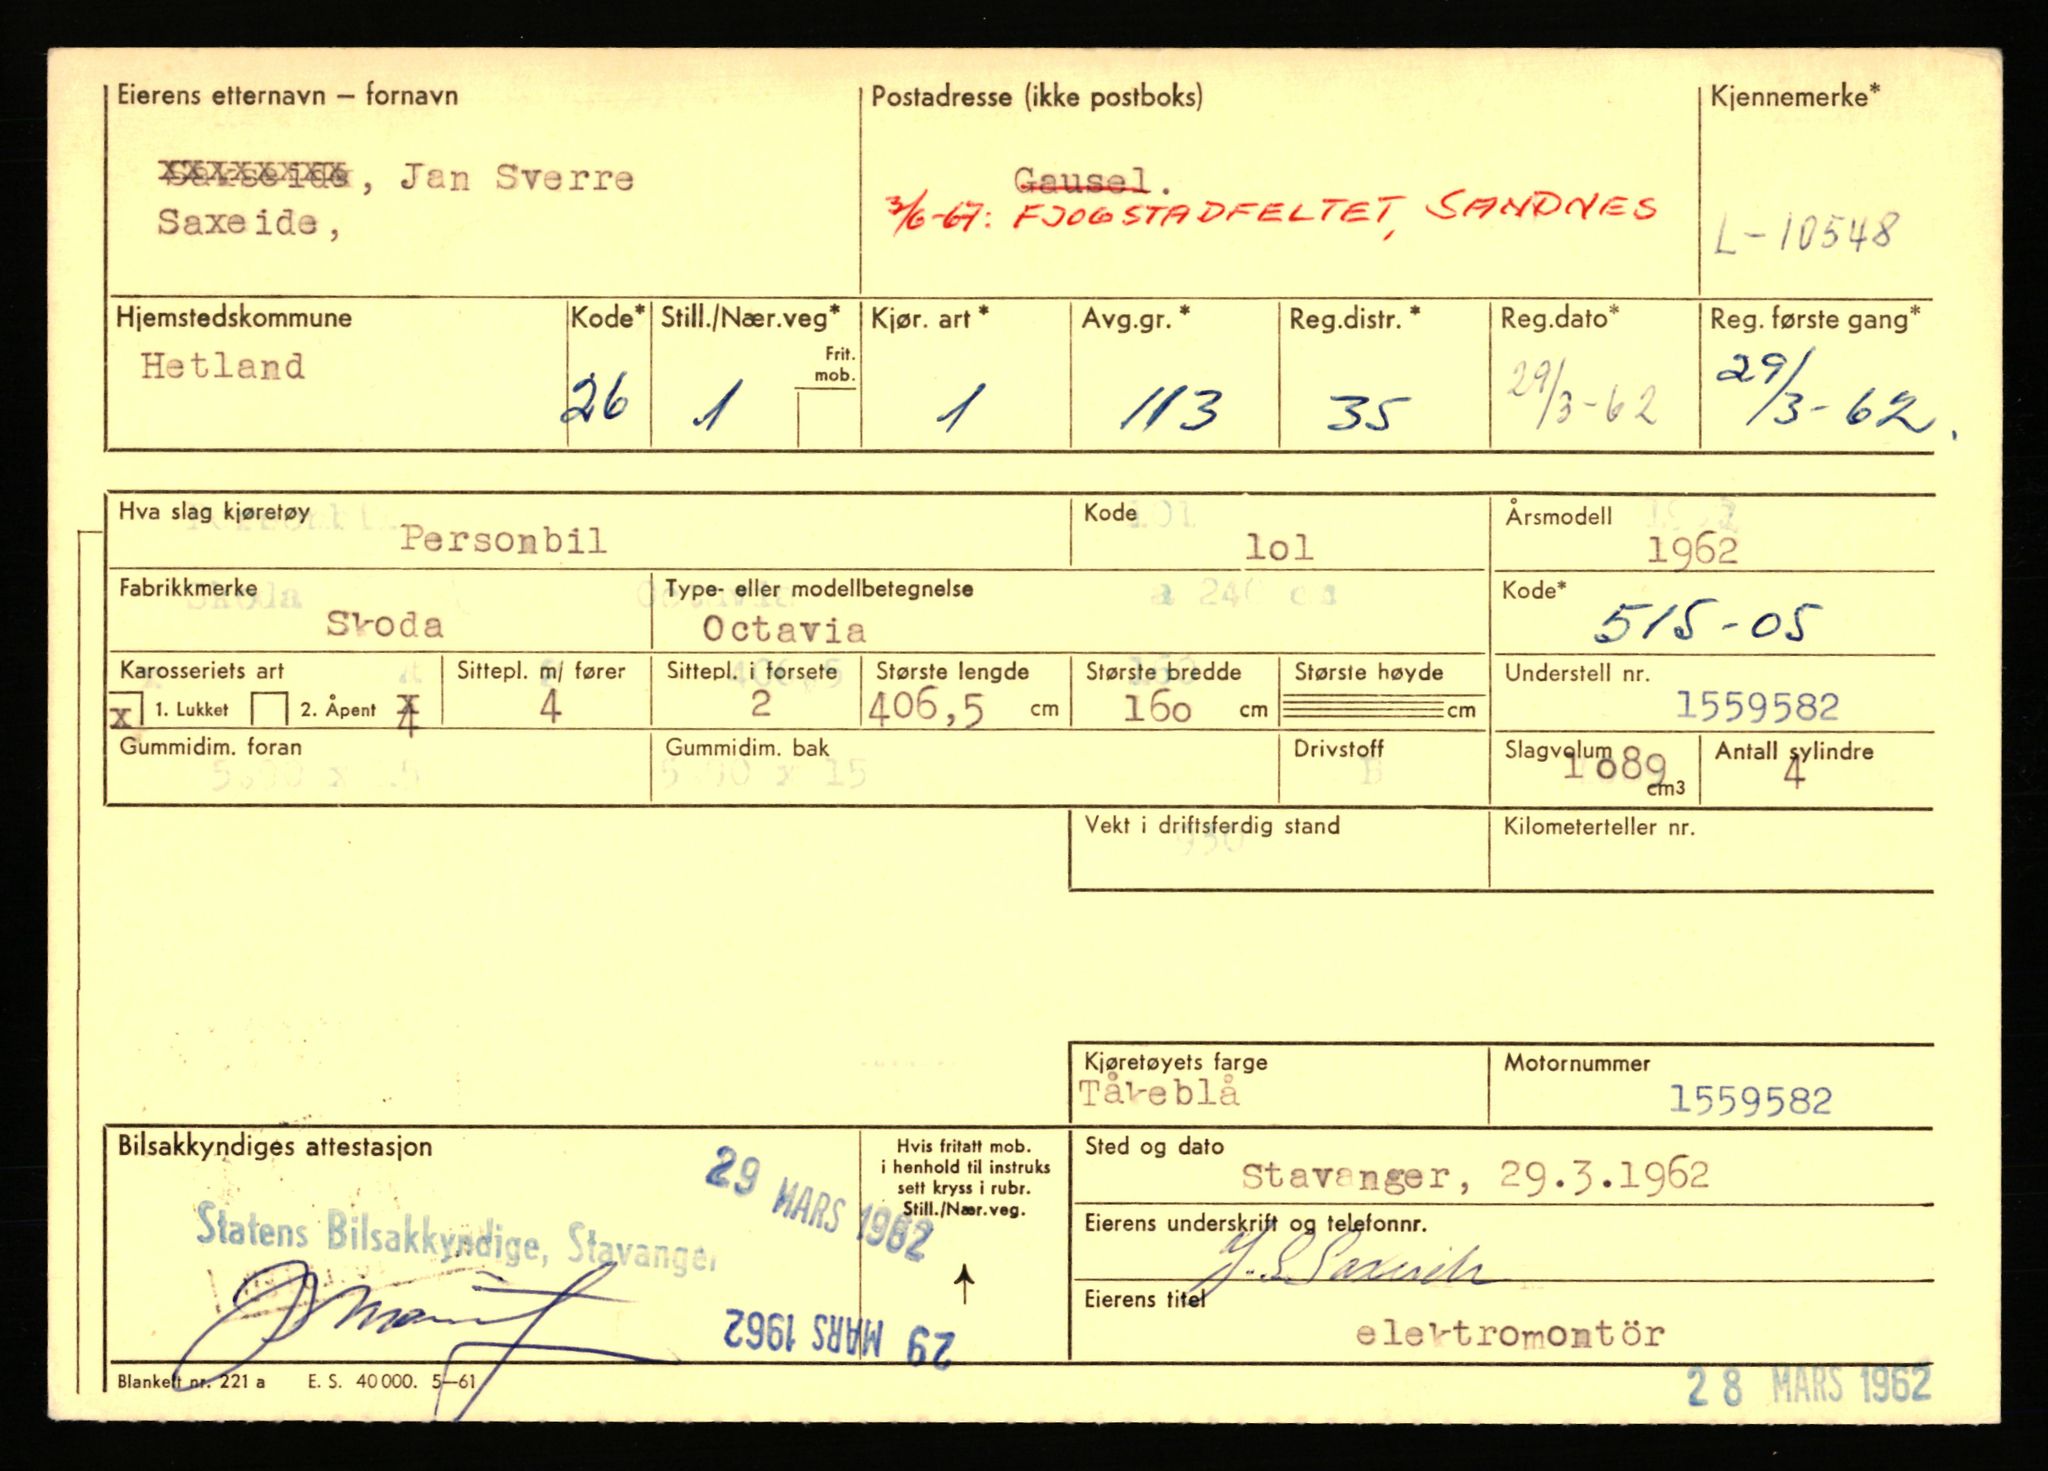 Eierens etternavn – fornavn
Postadresse (ikke postboks)
Kjennemerke*
Sakseide, Jan Sverre
Saxeide,
Gausel.
3/6-67: FJOGSTADFELTET, SANDNES
L-10548
Hjemstedskommune
Kode*
Still./Nær.veg*
Kjør. art *
Avg.gr. *
Reg.distr. *
Reg.dato*
Reg. første gang*
Frit. mob.
Hetland
26
1
1
113
35
29/3-62
29/3-62.
Hva slag kjøretøy
Personbil
Kode
lol
Årsmodell
1962
Fabrikkmerke
Skoda
Type- eller modellbetegnelse
Octavia
Kode*
515-05
Karosseriets art
Sittepl. m/ fører
Sittepl. i forsete
Største lengde
Største bredde
Største høyde
Understell nr.
x 1. Lukket 2. Åpent 4
4
2
406,5 cm
160 cm
cm
1559582
Gummidim. foran
5.90 x 15
Gummidim. bak
5.90 x 15
Drivstoff
B
Slagvolum
1089 cm3
Antall sylindre
4
Vekt i driftsferdig stand
930
Kilometerteller nr.
Kjøretøyets farge
Tåkeblå
Motornummer
1559582
Bilsakkyndiges attestasjon
Hvis fritatt mob.
i henhold til instruks
sett kryss i rubr.
Still./Nær.veg.
Sted og dato
Stavanger, 29.3.1962
29 MARS 1962
Statens Bilsakkyndige, Stavanger
Eierens underskrift og telefonnr.
J. S. Saxeide
29 MARS 1962
Eierens titel
elektromontör
Blankett nr. 221 a E. S. 40 000. 5—61
28 MARS 1962